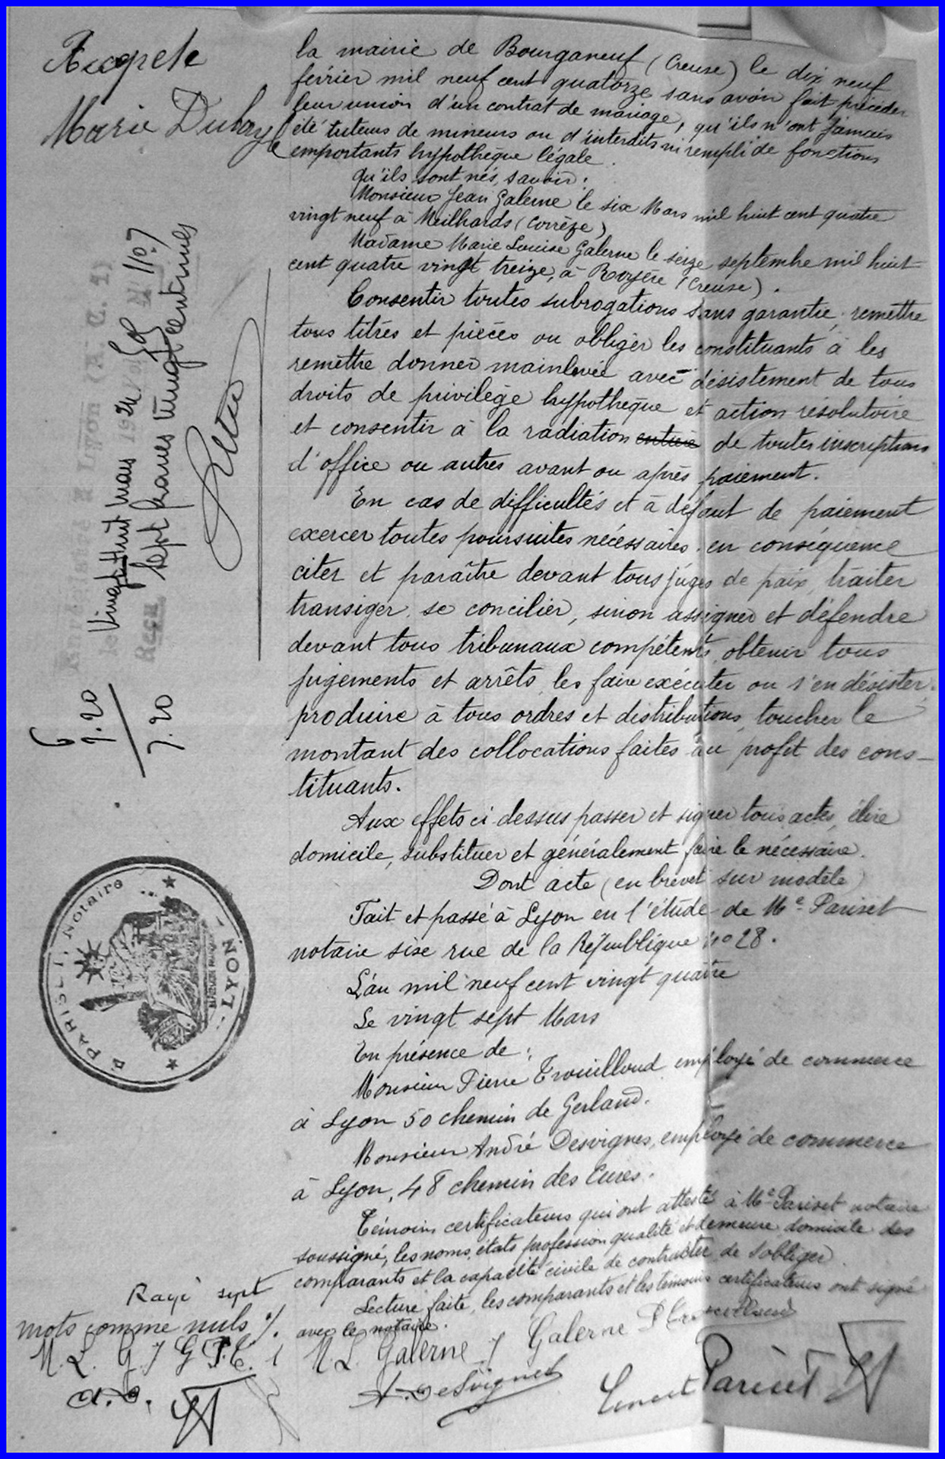 la mairie de Bourganeuf (Creuse) le dix neuf
février mil neuf cent quatorze sans avoir fait précéder
leur union d'un contrat de mariage, qu'ils n'ont jamais
été tuteurs de mineurs ou d'interdits ni rempli de fonctions
emportants hypothèque légale.
Qu'ils sont nés, savoir:
Monsieur Jean Galerne le six Mars mil huit cent quatre
vingt neuf à Meilhards (Corrèze)
Madame Marie Louise Galerne le seize septembre mil huit
cent quatre vingt treize, à Royère (Creuse).
Consentir toutes subrogations sans garantie, remettre
tous titres et pièces ou obliger les constituants à les
remettre donner mainlevée avec désistement de tous
droits de privilège hypothèque et action résolutoire
et consentir à la radiation entière de toutes inscriptions
d'office ou autres avant ou après paiement.
En cas de difficultés et à défaut de paiement
exercer toutes poursuites nécessaires, en conséquence
citer et paraître devant tous juges de paix, traiter
transiger, se concilier, sinon assigner et défendre
devant tous tribunaux compétents, obtenir tous
jugements et arrêts, les faire exécuter ou s'en désister,
produire à tous ordres et distributions, toucher le
montant des collocations faites au profit des cons-
tituants.
Aux effets ci dessus passer et signer tous actes, élire
domicile, substituer et généralement faire le nécessaire.
Dont acte (en brevet sur modèle)
Fait et passé à Lyon en l'étude de Me Pariset
notaire sise rue de la République no 28.
L'an mil neuf cent vingt quatre
Le vingt sept Mars
En présence de:
Monsieur Pierre Trouilloud employé de commerce
à Lyon 50 chemin de Gerland.
Monsieur André Desvignes, employé de commerce
à Lyon, 48 chemin des Cures.
Témoins certificateurs qui ont attesté à Me Pariset notaire
soussigné, les noms, états profession qualité et demeure domicile des
comparants et la capacité civile de contracter de s'obliger.
Lecture faite, les comparants et les témoins certificateurs ont signé
avec le notaire.
M L. Galerne J Galerne P Trouilloud
A. Desvignes
Pariset
Marie
Vingt Huit Mars 1924
sept francs vingt centimes
Reçu
Lyon (A. C. 1)
7.20
7.20
PARISET, Notaire
LYON
Rayé sept
mots comme nuls
M. L. G. J G P.T.
A. D.